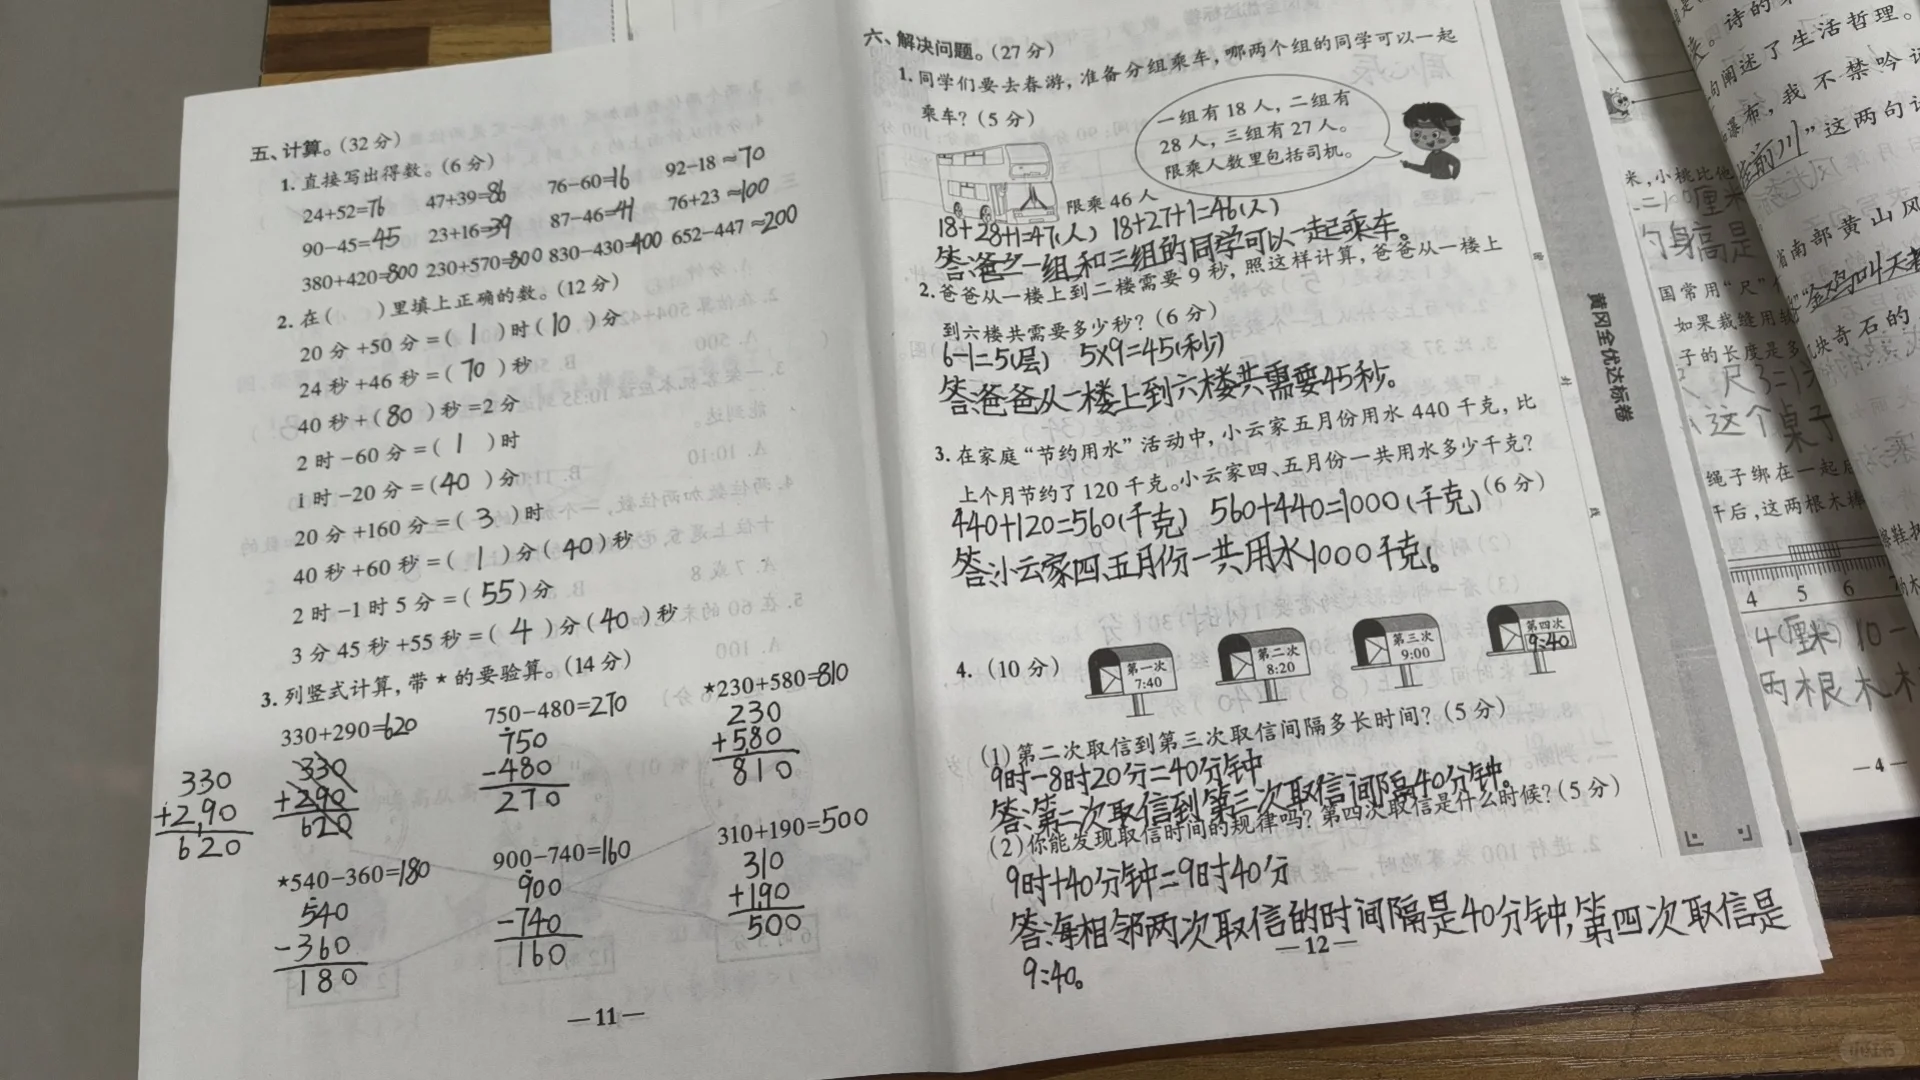 五、计算。(32分)
1. 直接写出得数。(6分)
24+52=76 47+39=86 76-60=16 92-18≈70
90-45=45 23+16=39 87-46=41 76+23≈100
380+420=800 230+570=800 830-430=400 652-447≈200
2. 在( )里填上正确的数。(12分)
20分+50分=( 1 )时( 10 )分
24秒+46秒=( 70 )秒
40秒+( 80 )秒=2分
2时-60分=( 1 )时
1时-20分=( 40 )分
20分+160分=( 3 )时
40秒+60秒=( 1 )分( 40 )秒
2时-1时5分=( 55 )分
3分45秒+55秒=( 4 )分( 40 )秒
3. 列竖式计算,带★的要验算。(14分)
330+290=620 750-480=270 ★230+580=810
330 330 750 230
+290 +290 -480 +580
620 620 270 810
★540-360=180 900-740=160 310+190=500
540 900 310
-360 -740 +190
180 160 500
—11—
六、解决问题。(27分)
1. 同学们要去春游,准备分组乘车,哪两个组的同学可以一起
乘车?(5分)
一组有18人,二组有
28人,三组有27人。
限乘人数里包括司机。
限乘46人
18+28+1=47(人) 18+27+1=46(人)
一组和三组的同学可以一起乘车。
2. 爸爸从一楼上到二楼需要9秒,照这样计算,爸爸从一楼上
到六楼共需要多少秒?(6分)
6-1=5(层) 5×9=45(秒)
答:爸爸从一楼上到六楼共需要45秒。
3. 在家庭“节约用水”活动中,小云家五月份用水440千克,比
上个月节约了120千克。小云家四、五月份一共用水多少千克?
(6分)
440+120=560(千克) 560+440=1000(千克)
答:小云家四、五月份一共用水1000千克。
4. (10分)
第一次 7:40
第二次 8:20
第三次 9:00
第四次 9:40
(1)第二次取信到第三次取信间隔多长时间?(5分)
9时-8时20分=40分钟
答:第二次取信到第三次取信间隔40分钟。
(2)你能发现取信时间的规律吗?第四次取信是什么时候?(5分)
9时+40分钟=9时40分
答:每相邻两次取信的时间隔是40分钟,第四次取信是
9:40。
—12—
黄冈全优达标卷
诗的
生活哲理。
句阐述了
瀑布,我不禁吟
”这两句
米,小桃比他
厘米
的身高是
国常用“尺”
如果裁缝用
子的长度是多
这个桌子
绳子绑在一起
后,这两根木棒
4 5 6
4(厘米) 10-
两根木
—4—
南部黄山风
“金鸡叫天
奇石的